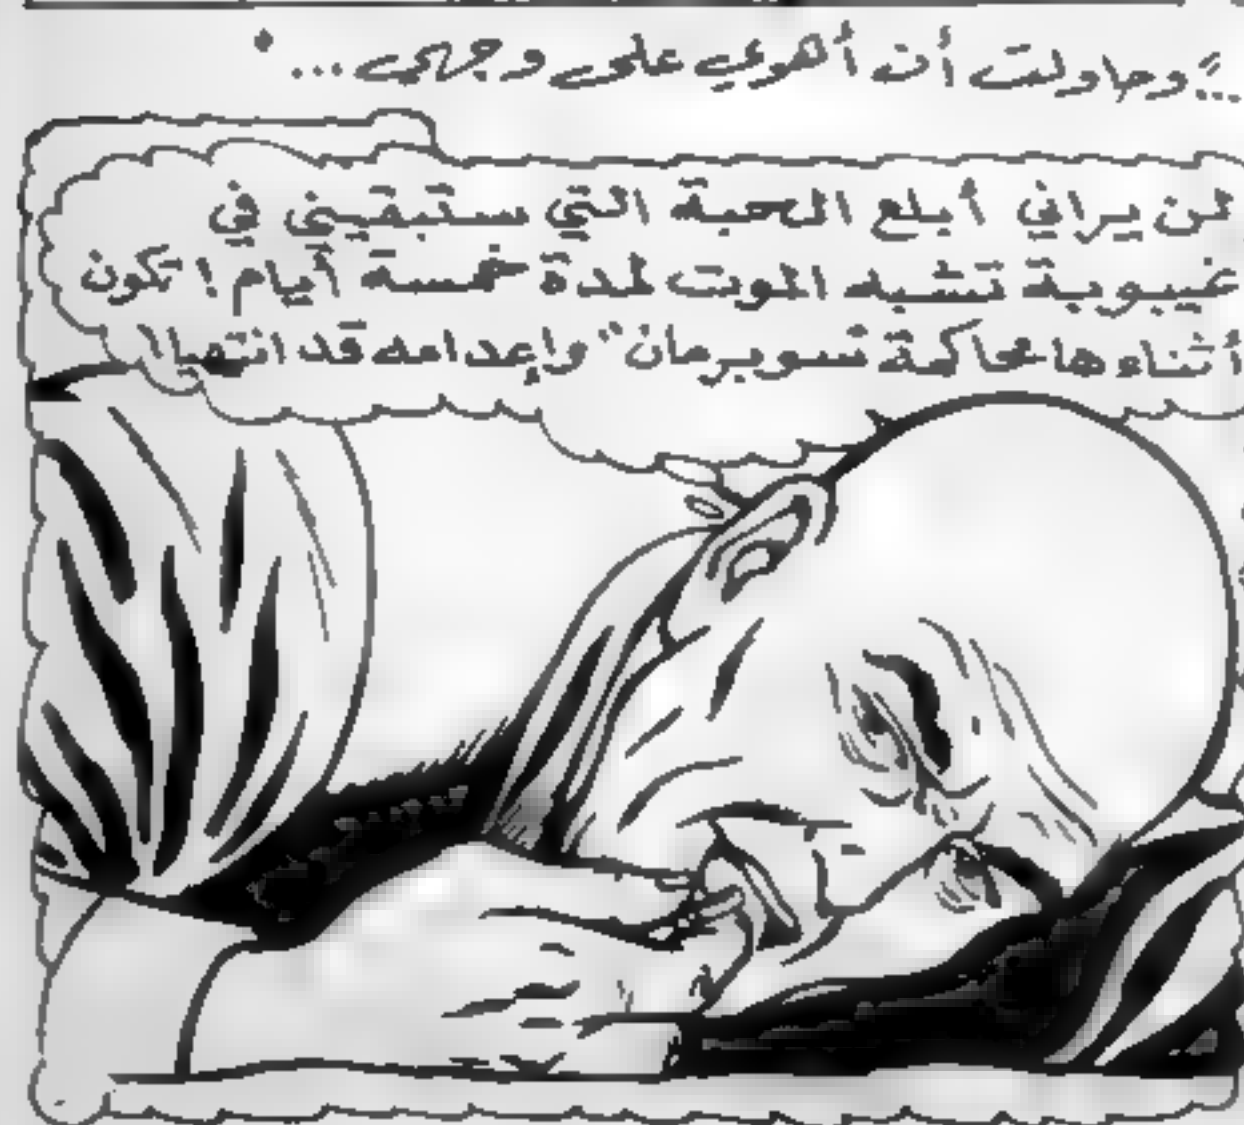 ..."وحاولت أن أهوي على وجهي...
لن يراني أبلع الحبة التي ستبقيني في
غيبوبة تشبه الموت لمدة خمسة أيام! تكون
أثناءها محاكمة سوبرمان" وإعدامه قد انتهيا!